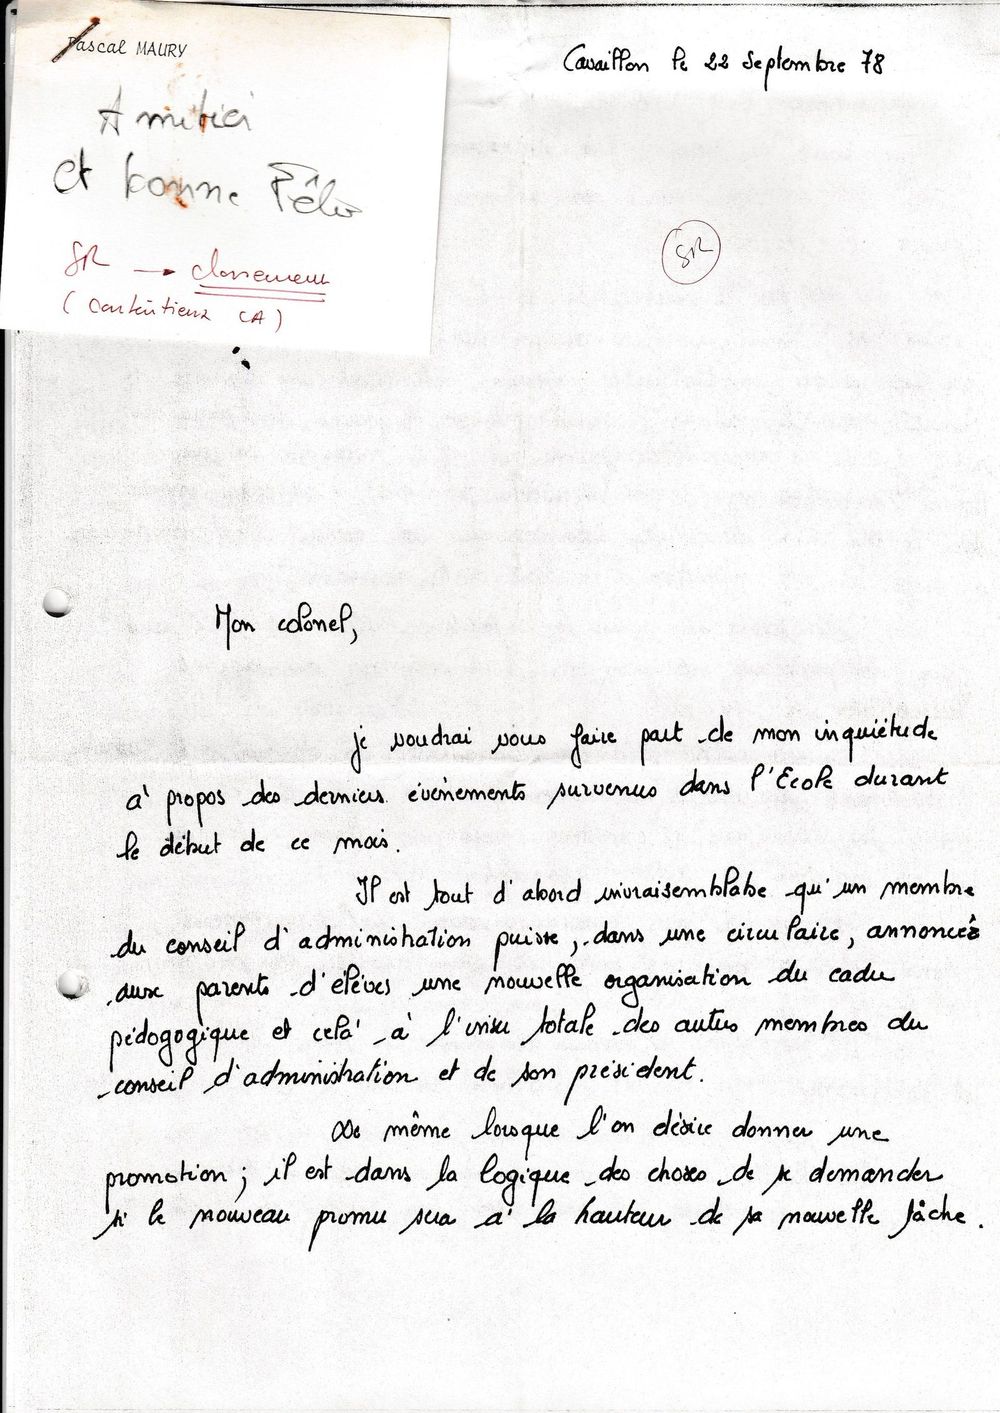 Pascal MAURY
Amitiés
et bonne Fête
SR → classement
(Contentieux CA)
Cavaillon le 22 Septembre 78
SR
Mon colonel,
je voudrai vous faire part de mon inquiétude
à propos des derniers évènements survenus dans l'Ecole durant
le début de ce mois.
Il est tout d'abord invraisemblabe qu'un membre
du conseil d'administration puisse, dans une circulaire, annoncés
aux parents d'élèves une nouvelle organisation du cadre
pédogogique et celà à l'insu totale des autres membres du
conseil d'administration et de son président.
De même lorsque l'on désire donner une
promotion ; il est dans la logique des choses de se demander
si le nouveau promu sera à la hauteur de sa nouvelle tâche.